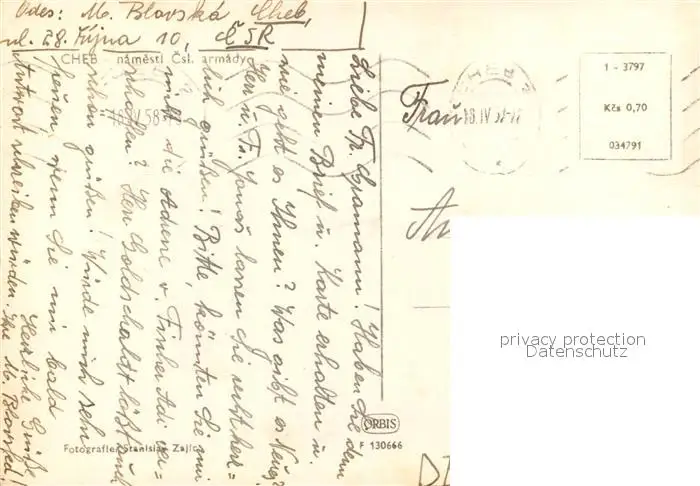 Odes: M. Blovská Cheb,
ul. 28. října 10, ČSR
CHEB náměstí Čsl. armády
Liebe Fr. Gramann! Haben Sie denn
meinen Brief u. Karte erhalten u.
wie geht es Ihnen? Was gibt es Neues?
Herr u. Fr. lassen Sie recht herz=
lich grüßen! Bitte, könnten Sie mir
nicht die Adresse v. Fischer Adi
erhalten? Herr Goldschaldt läßt auch
schön grüßen! Würde mich sehr
freuen, wenn Sie mir bald
Antwort schreiben würden.
Herzliche Grüße
Ihre M. Blovská!
Fotografie: Stanislav Zajíc
ORBIS
F 130666
Frau
CHEB
1 - 3797
Kčs 0,70
034791
privacy protection
Datenschutz